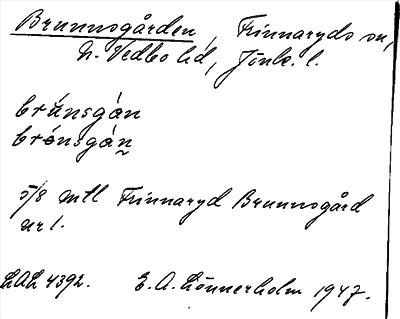 Brunnsgården, Frinnaryds sn,
N. Vedbo hd, Jönk. l.
brúnsgán
brónsgáṉ
5/8 mtl Frinnaryd Brunnsgård
nr 1.
LAL 4392. E. A. Lönnerholm 1947.